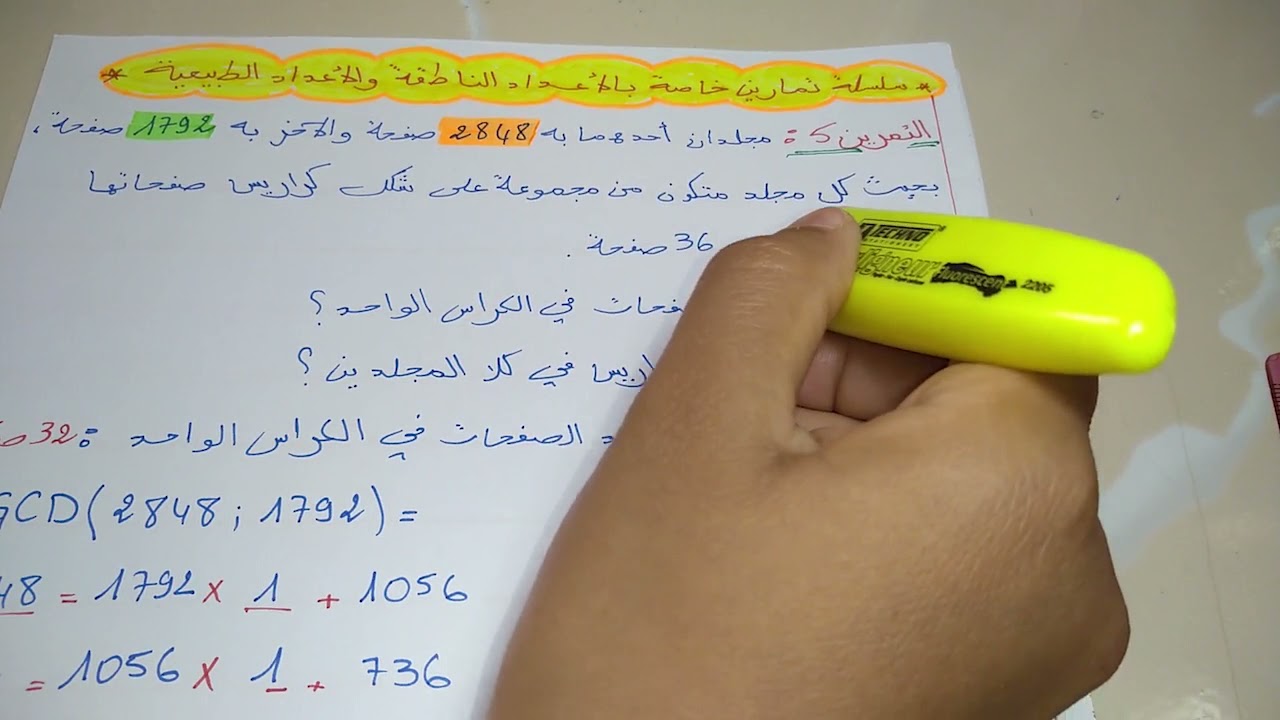 * سلسلة تمارين خاصة بالأعداد الناطقة والأعداد الطبيعية *
التمرين 5 : مجلدان أحدهما به 2848 صفحة والآخر به 1792 صفحة ،
بحيث كل مجلد متكون من مجموعة على شكل كراريس صفحاتها
36 صفحة .
في الكراس الواحد ؟
في كلا المجلدين ؟
الصفحات في الكراس الواحد : 32
GCD(2848 ; 1792) =
48 = 1792 × 1 + 1056
= 1056 × 1 + 736
TECHNO
STATIONERY
Fluorescent
2206